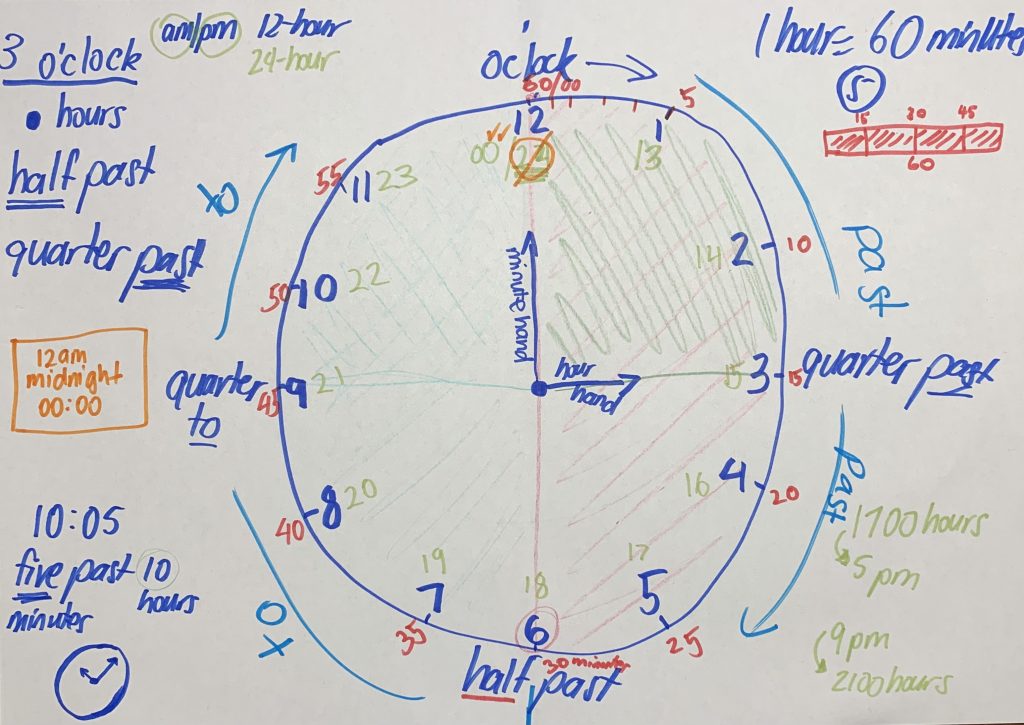 3 o'clock
am/pm 12-hour
24-hour
• hours
half past
quarter past
12am
midnight
00:00
10:05
five past 10
minutes hours
o'clock →
60/00
12
00 24
5
1
13
10
2
14
15
3
15
quarter past
20
4
16
25
5
17
30 minutes
6
18
half past
35
7
19
40
8
20
45
9
21
quarter
to
50
10
22
55
11
23
minute hand
hour
hand
to
to
past
past
1 hour = 60 minutes
5
15 30 45
60
1700 hours
5 pm
9 pm
2100 hours